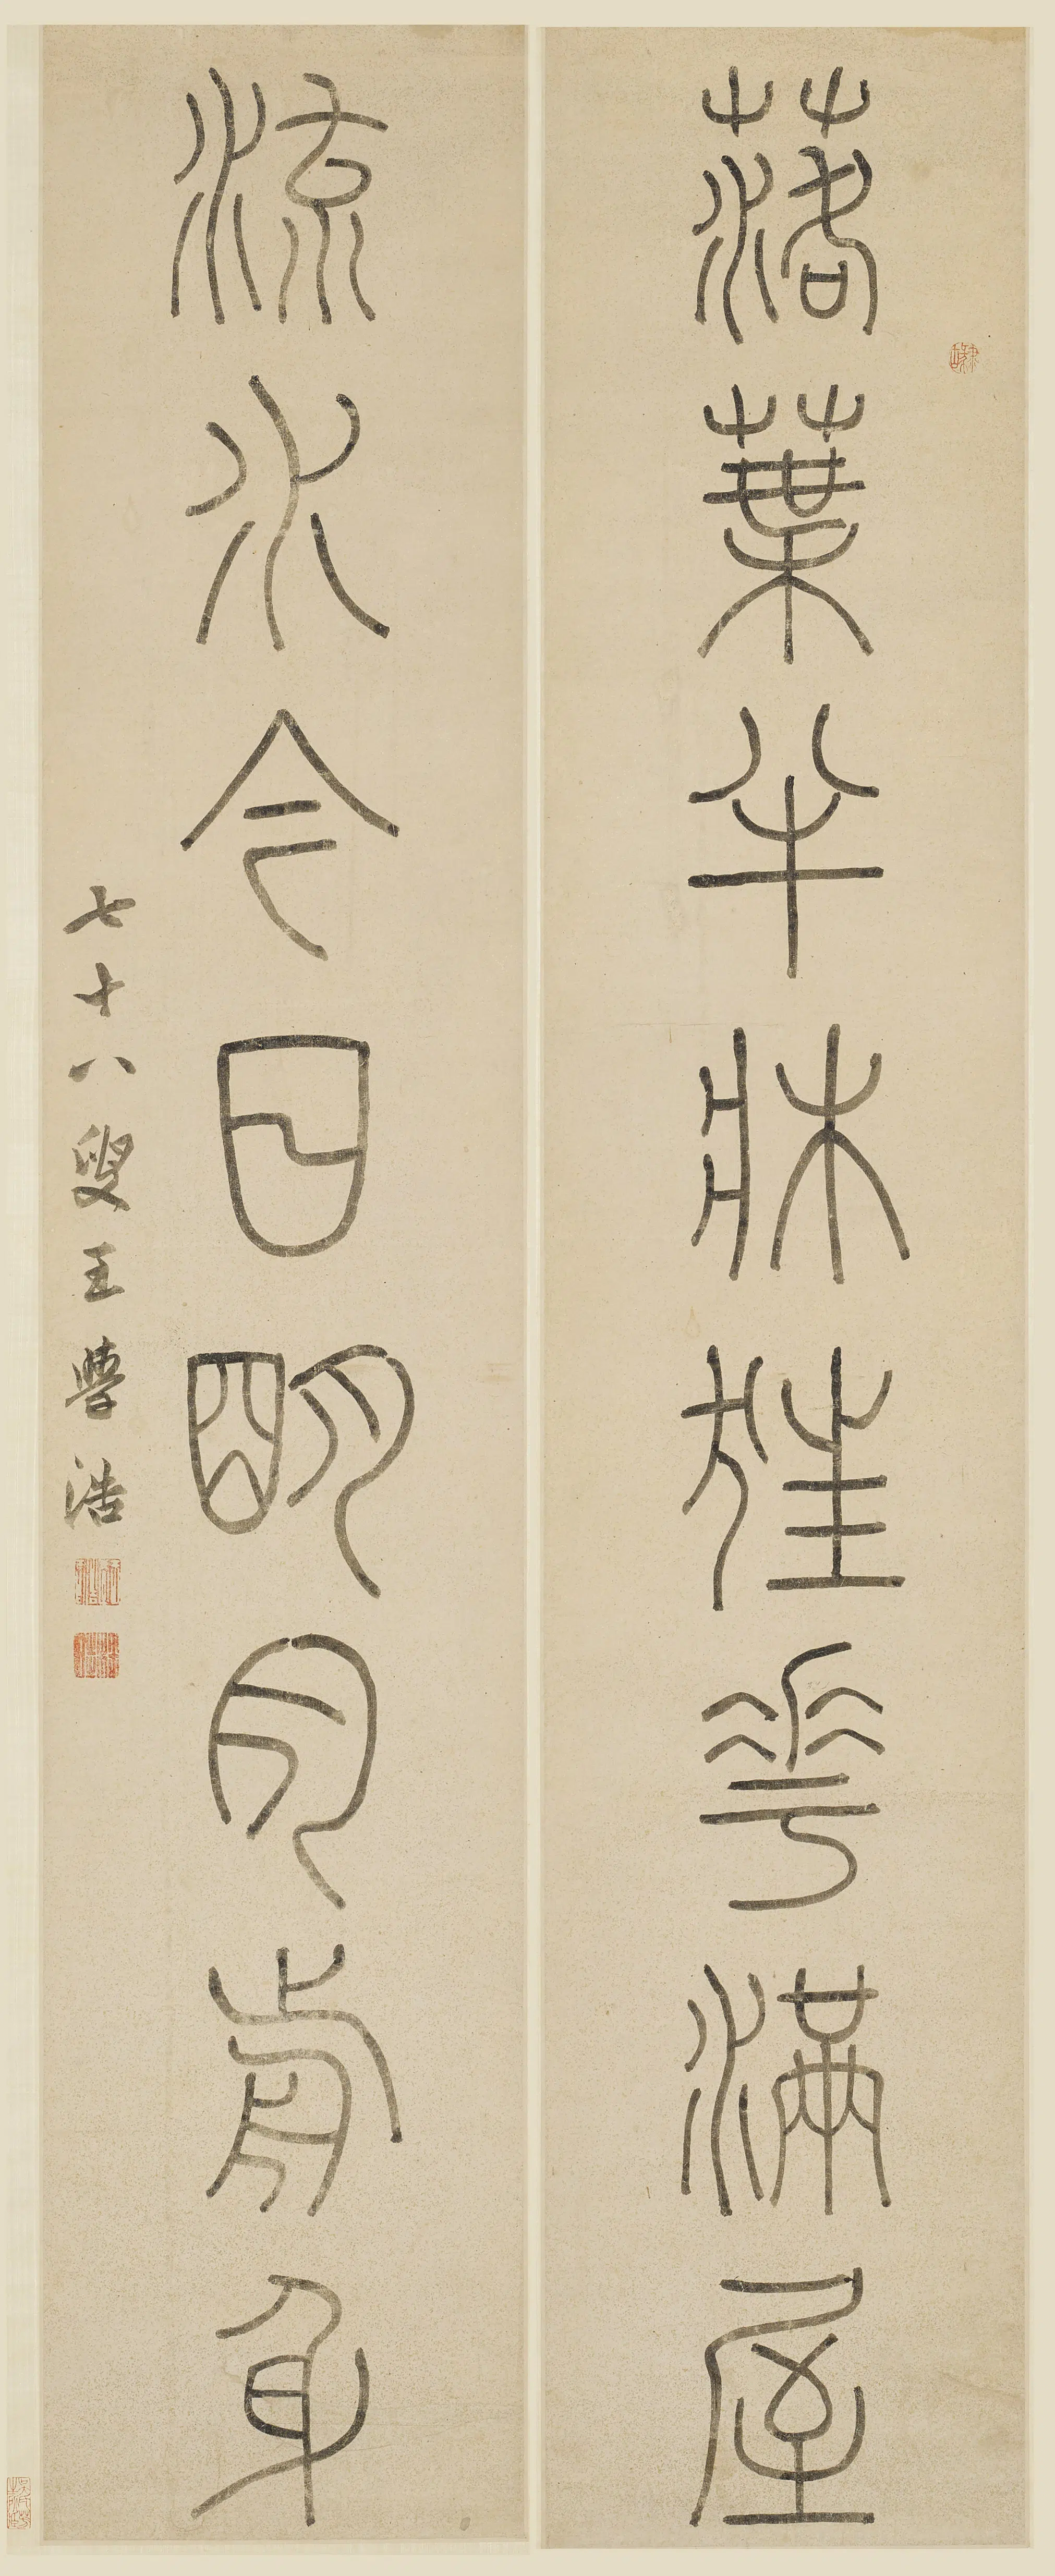 落葉半牀狂花滿屋
流水今日明月前身
七十八叟王學浩